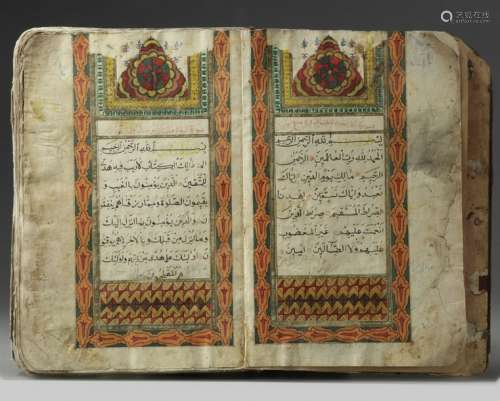 بسم الله الرحمن الرحيم
الحمد لله رب العالمين الرحمن
الرحيم مالك يوم الدين اياك
نعبد واياك نستعين اهدنا
الصراط المستقيم صراط الذين
انعمت عليهم غير المغضوب
عليهم ولا الضالين امين
بسم الله الرحمن الرحيم
الم ذلك الكتاب لا ريب فيه هدى
للمتقين الذين يؤمنون بالغيب و
يقيمون الصلوة ومما رزقناهم ينفقو
ن والذين يؤمنون بما انزل اليك
وما انزل من قبلك وبالاخرة هم يوقنو
ن اولئك على هدى من ربهم واولئك
هم المفلحون